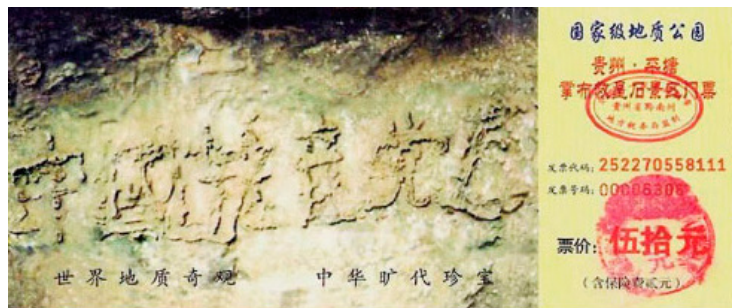 中國共产党亡
世界地质奇观 中华旷代珍宝
国家级地质公园
贵州·平塘
掌布救星石景区门票
贵州省黔南州
地方税务局监制
发票代码: 252270558111
发票号码: 00006308
票价: 伍拾元
(含保险费贰元)